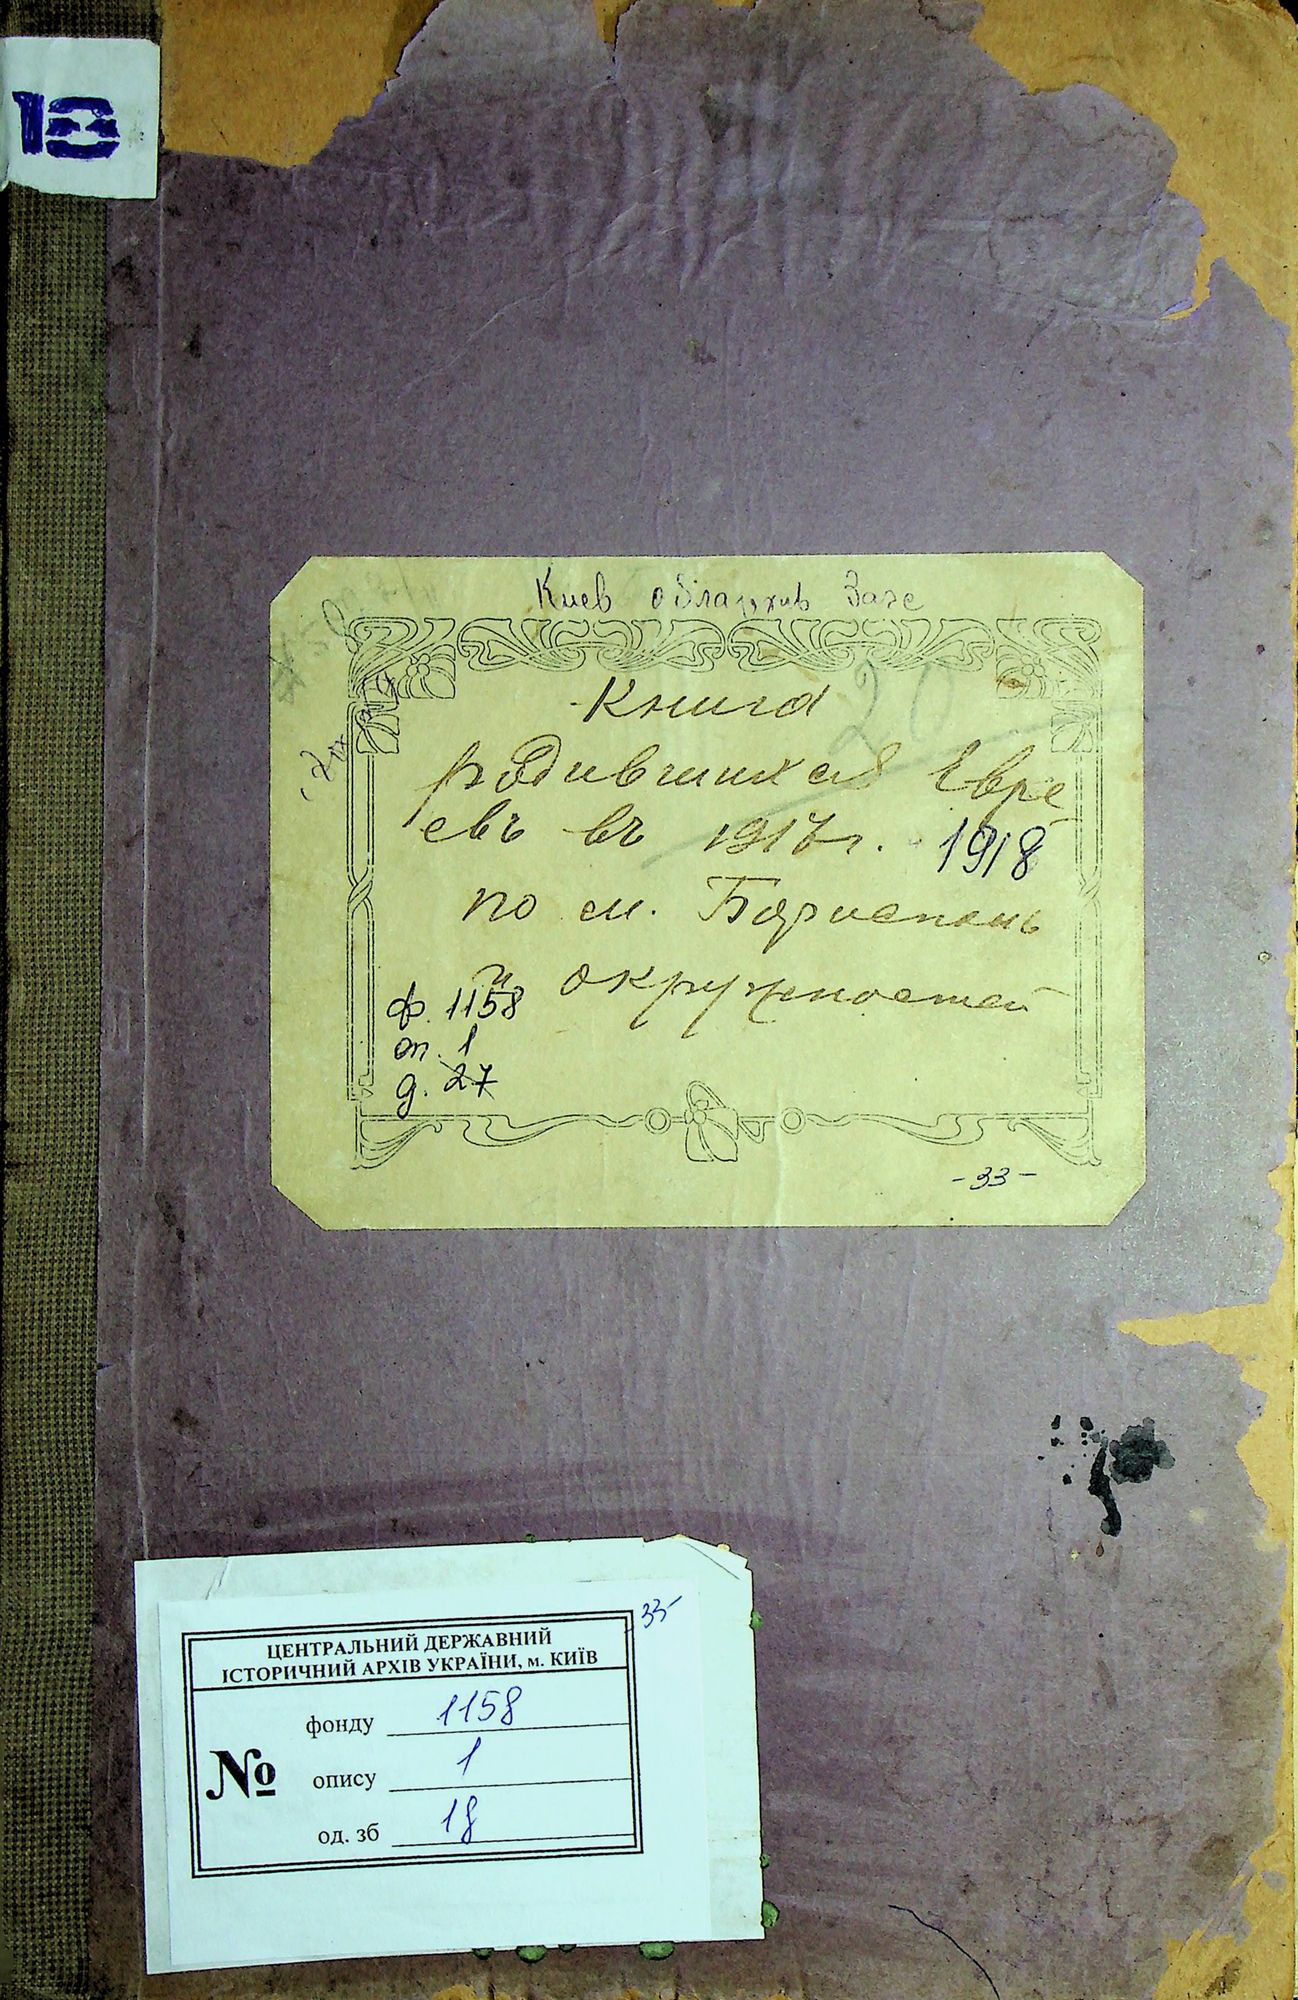 18
Киев облархив Загс
20
Книга
родившихся Евре-
евъ въ 1917 г. - 1918
по м. Бориспопь
и окружностей
ф. 1158
оп. 1
д. 27
- 33 -
33-
ЦЕНТРАЛЬНИЙ ДЕРЖАВНИЙ
ІСТОРИЧНИЙ АРХІВ УКРАЇНИ, м. КИЇВ
№
фонду 1158
опису 1
од. зб 18